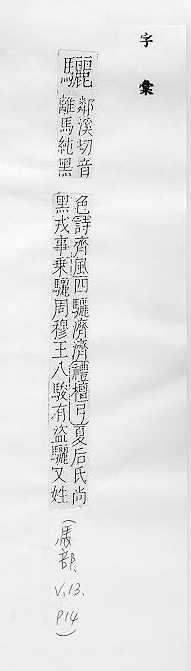 字彙
驪
鄰溪切音
離馬純黑
色詩齊風四驪濟濟禮檀弓夏后氏尚
黑戎事乗驪周穆王八駿有盜驪又姓
(馬部、
V.13.
P14)